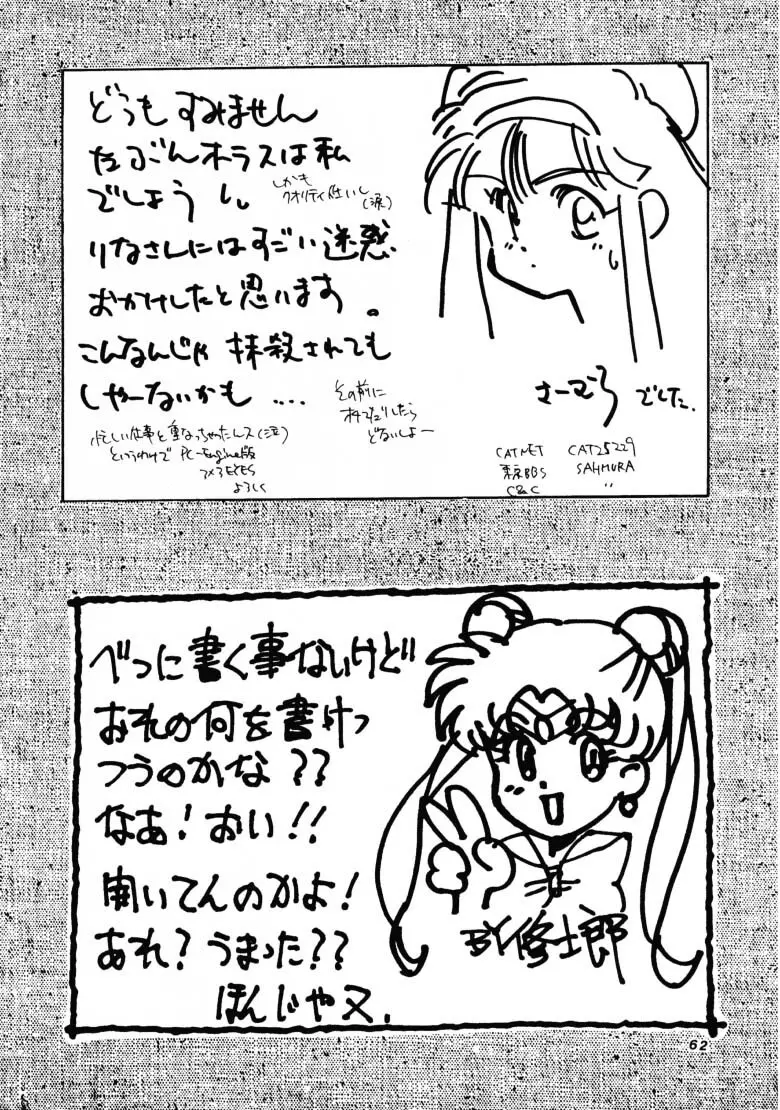 どうもすみません
たぶんホラスは私
でしょう
しかも
クオリティ低いし
(涙)
りなさんにはすごい迷惑
おかけしたと思います。
こんなんじゃ抹殺されても
しゃーないかも....
その前に
どないしよー
忙しい仕事と重なっちゃったんス(泣)
というわけで PC-Engine版
3×3EYES
よろしく
さーむら でした.
CATNET CAT25229
東京BBS SAHMURA
C&C 〃
べつに書く事ないけど
おれの何を書けっ
つうのかな??
なあ!おい!!
聞いてんのかよ!
あれ?うまった??
ほんじゃ又.
BY修士郎
62